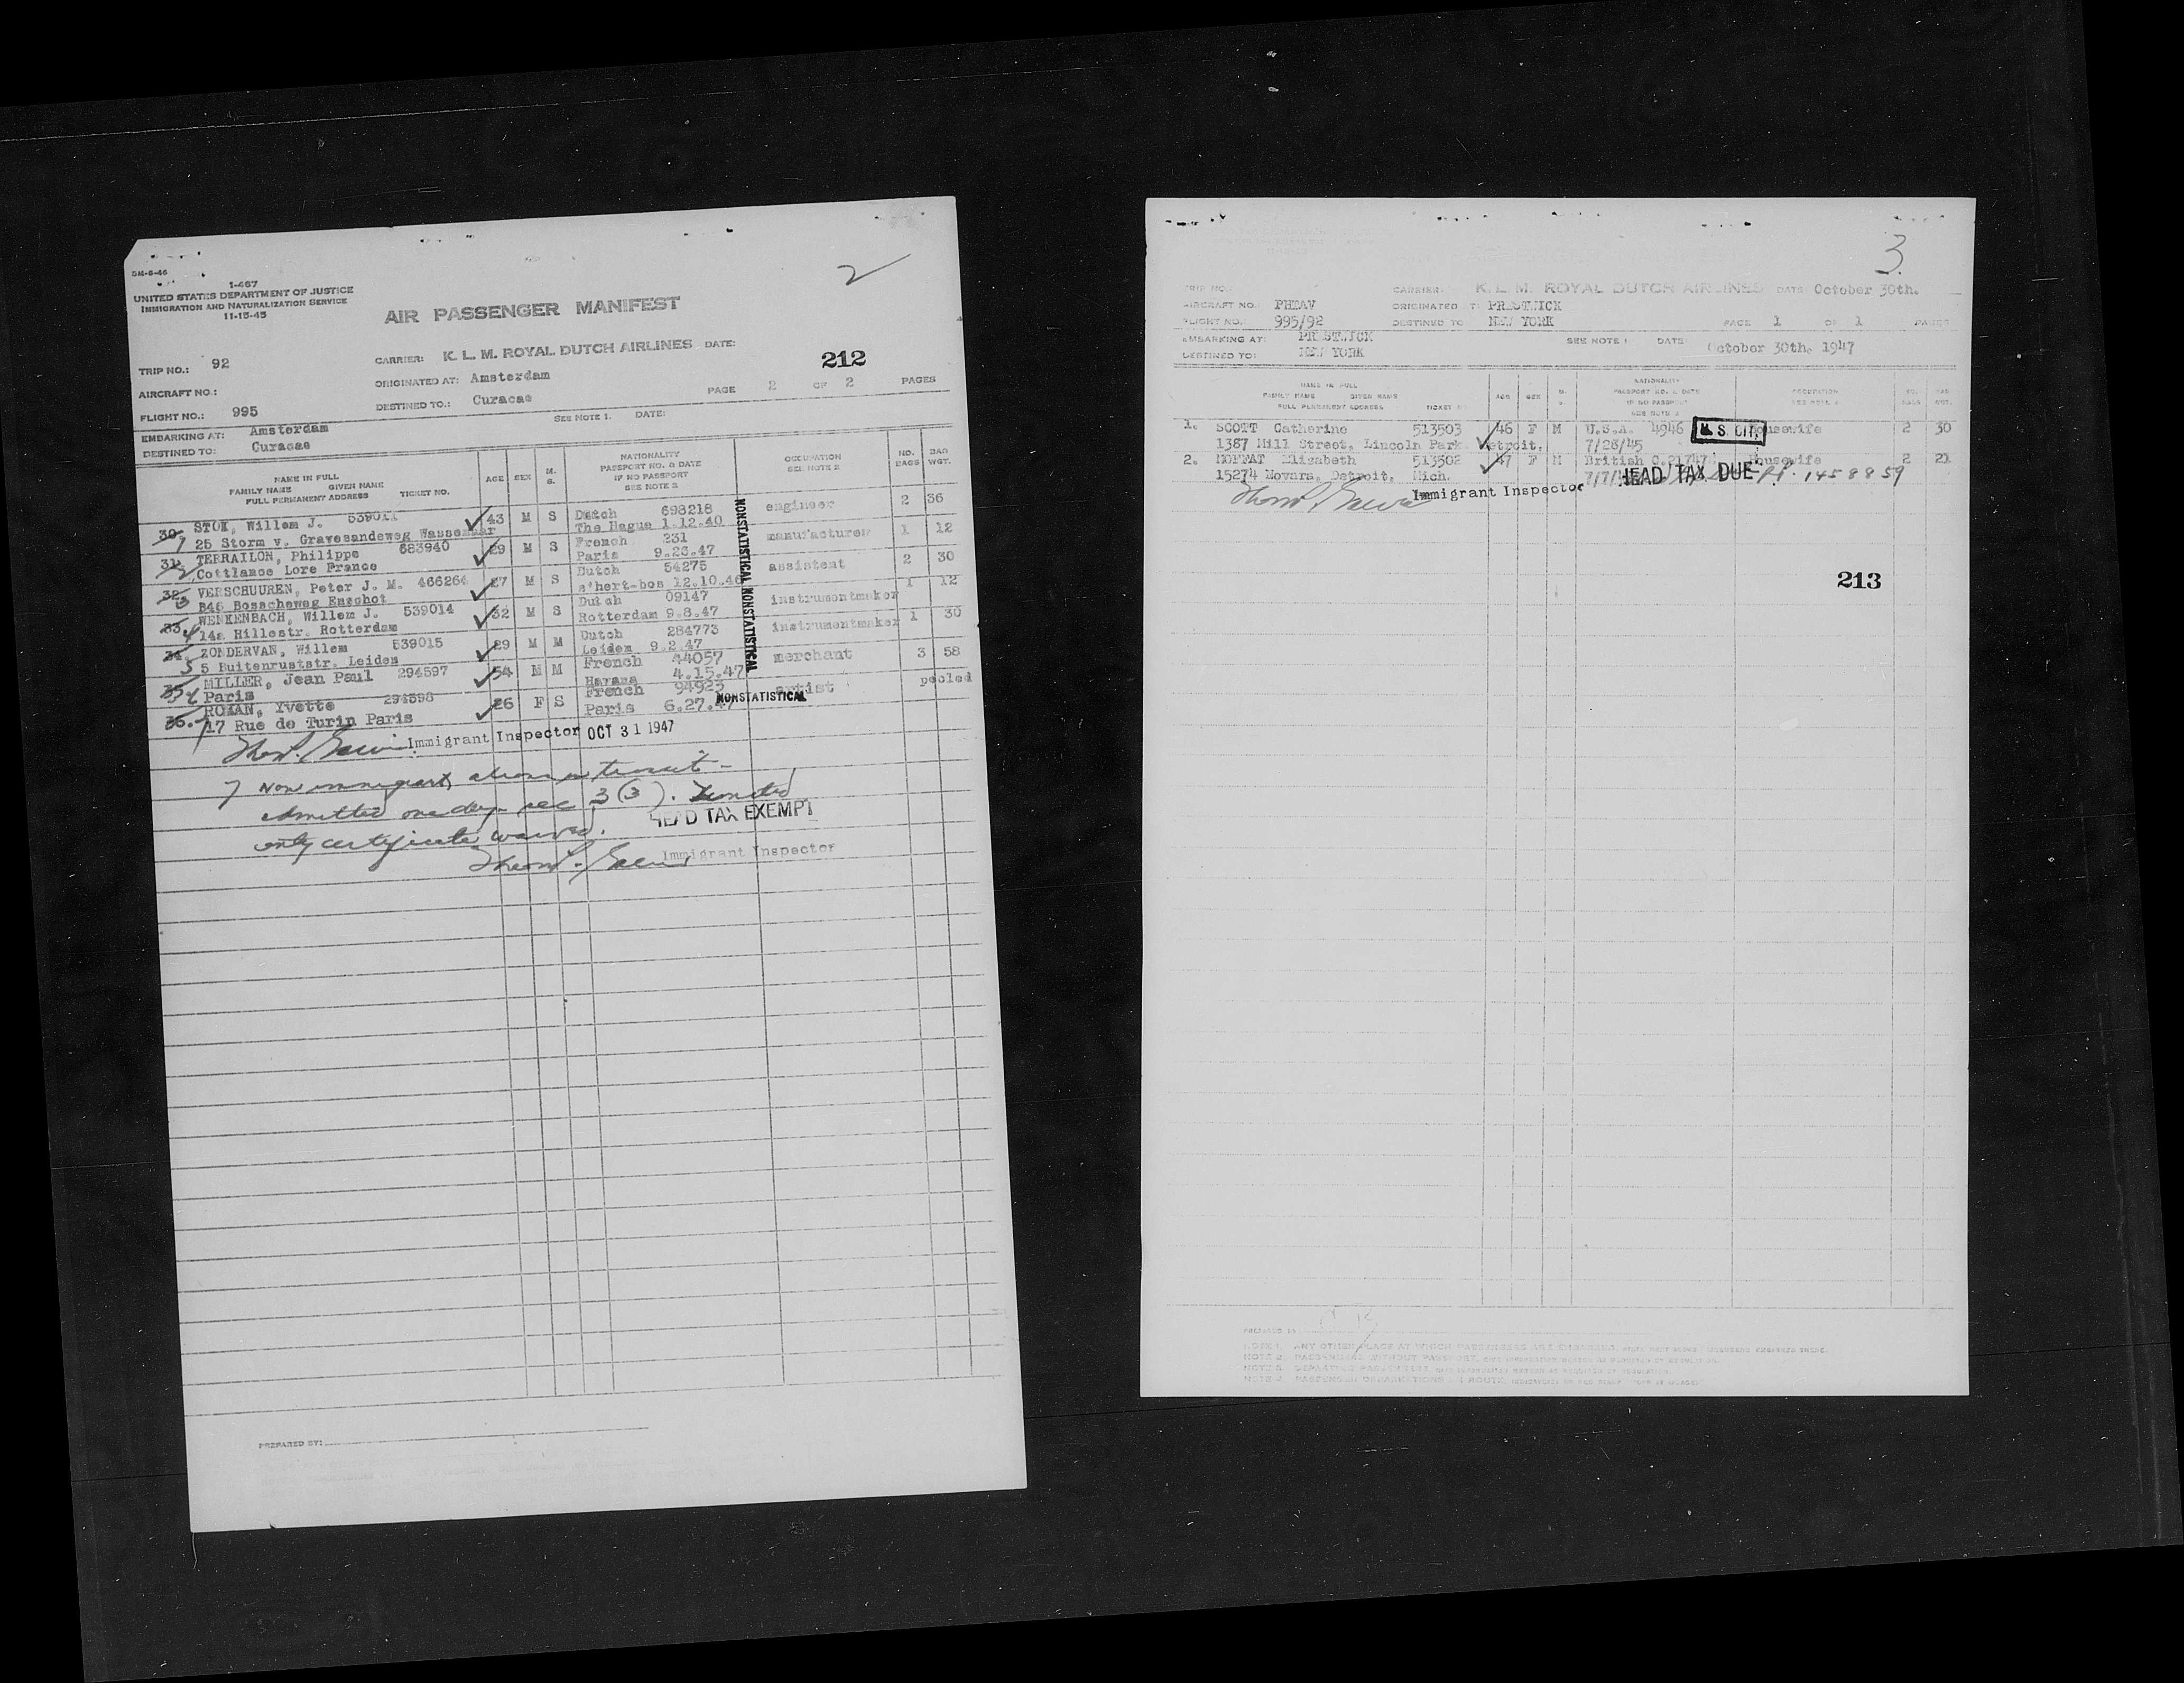 2
SM-6-46
I-467
UNITED STATES DEPARTMENT OF JUSTICE
IMMIGRATION AND NATURALIZATION SERVICE
11-15-45
AIR PASSENGER MANIFEST
TRIP NO.: 92 CARRIER: K. L. M. ROYAL DUTCH AIRLINES DATE: 212
AIRCRAFT NO.: ORIGINATED AT: Amsterdam PAGE 2 OF 2 PAGES
FLIGHT NO.: 995 DESTINED TO.: Curacao
SEE NOTE 1. DATE:
EMBARKING AT: Amsterdam
DESTINED TO: Curacao
NAME IN FULL
FAMILY NAME GIVEN NAME
FULL PERMANENT ADDRESS TICKET NO.
AGE SEX M. S.
NATIONALITY
PASSPORT NO. & DATE
IF NO PASSPORT
SEE NOTE 2
OCCUPATION
SEE NOTE 2
NO. BAGS
BAG WGT.
30. 1 STOK, Willem J. 539011 43 M S Dutch 698218 engineer 2 36
25 Storm v. Gravesandeweg Wassenaar The Hague 1.12.40
31. 2 TERRAILON, Philippe 683940 29 M S French 231 manufacturer 1 12
Cottlance Lore France Paris 9.26.47
32. 3 VERSCHUUREN, Peter J. M. 466264 27 M S Dutch 54275 assistent 2 30
B46 Bosscheweg Enschot s'hert-bos 12.10.46
33. 4 WENKENBACH, Willem J. 539014 32 M S Dutch 09147 instrumentmaker 1 12
14a Hillestr. Rotterdam Rotterdam 9.8.47
34. 5 ZONDERVAN, Willem 539015 29 M M Dutch 284773 instrumentmaker 1 30
5 Buitenruststr. Leiden Leiden 9.2.47
35. MILLER, Jean Paul 294597 54 M M French 44057 merchant 3 58
Paris Havana 4.15.47
36. ROMAN, Yvette 294598 26 F S French 94923 artist pooled
17 Rue de Turin Paris Paris 6.27.47
NONSTATISTICAL NONSTATISTICAL
NONSTATISTICAL
Immigrant Inspector OCT 31 1947
7 Non immigrant, aliens in transit -
admitted one day sec 3 (3). Transit
only certificate waived.
HEAD TAX EXEMPT
Immigrant Inspector
PREPARED BY:
3
TRIP NO.: CARRIER: K. L. M. ROYAL DUTCH AIRLINES DATE: October 30th.
AIRCRAFT NO. PHTAV ORIGINATED PRESTWICK
FLIGHT NO. 995/92 DESTINED TO NEW YORK PAGE 1 OF 1 PAGES
EMBARKING AT: PRESTWICK SEE NOTE 1 DATE: October 30th. 1947
DESTINED TO: NEW YORK
NAME IN FULL
FAMILY NAME GIVEN NAME
FULL PERMANENT ADDRESS TICKET NO.
AGE SEX M. S.
NATIONALITY
PASSPORT NO. & DATE
IF NO PASSPORT
SEE NOTE 2
OCCUPATION
SEE NOTE 2
1. SCOTT Catherine 513503 46 F M U.S.A. 4946 U. S. CIT. Housewife 2 30
1387 Mill Street. Lincoln Park Detroit. 7/28/45
2. MOFFAT Elizabeth 513502 47 F M British C.21747 Housewife 2 21
15274 Novara, Detroit, Mich. 7/7/ HEAD TAX DUE 1458859
Immigrant Inspector
213
PREPARED BY
NOTE 1. ANY OTHER PLACE AT WHICH PASSENGERS ARE
NOTE 2. PASSENGERS WITHOUT PASSPORT,
NOTE 3. DEPARTING PASSENGERS,